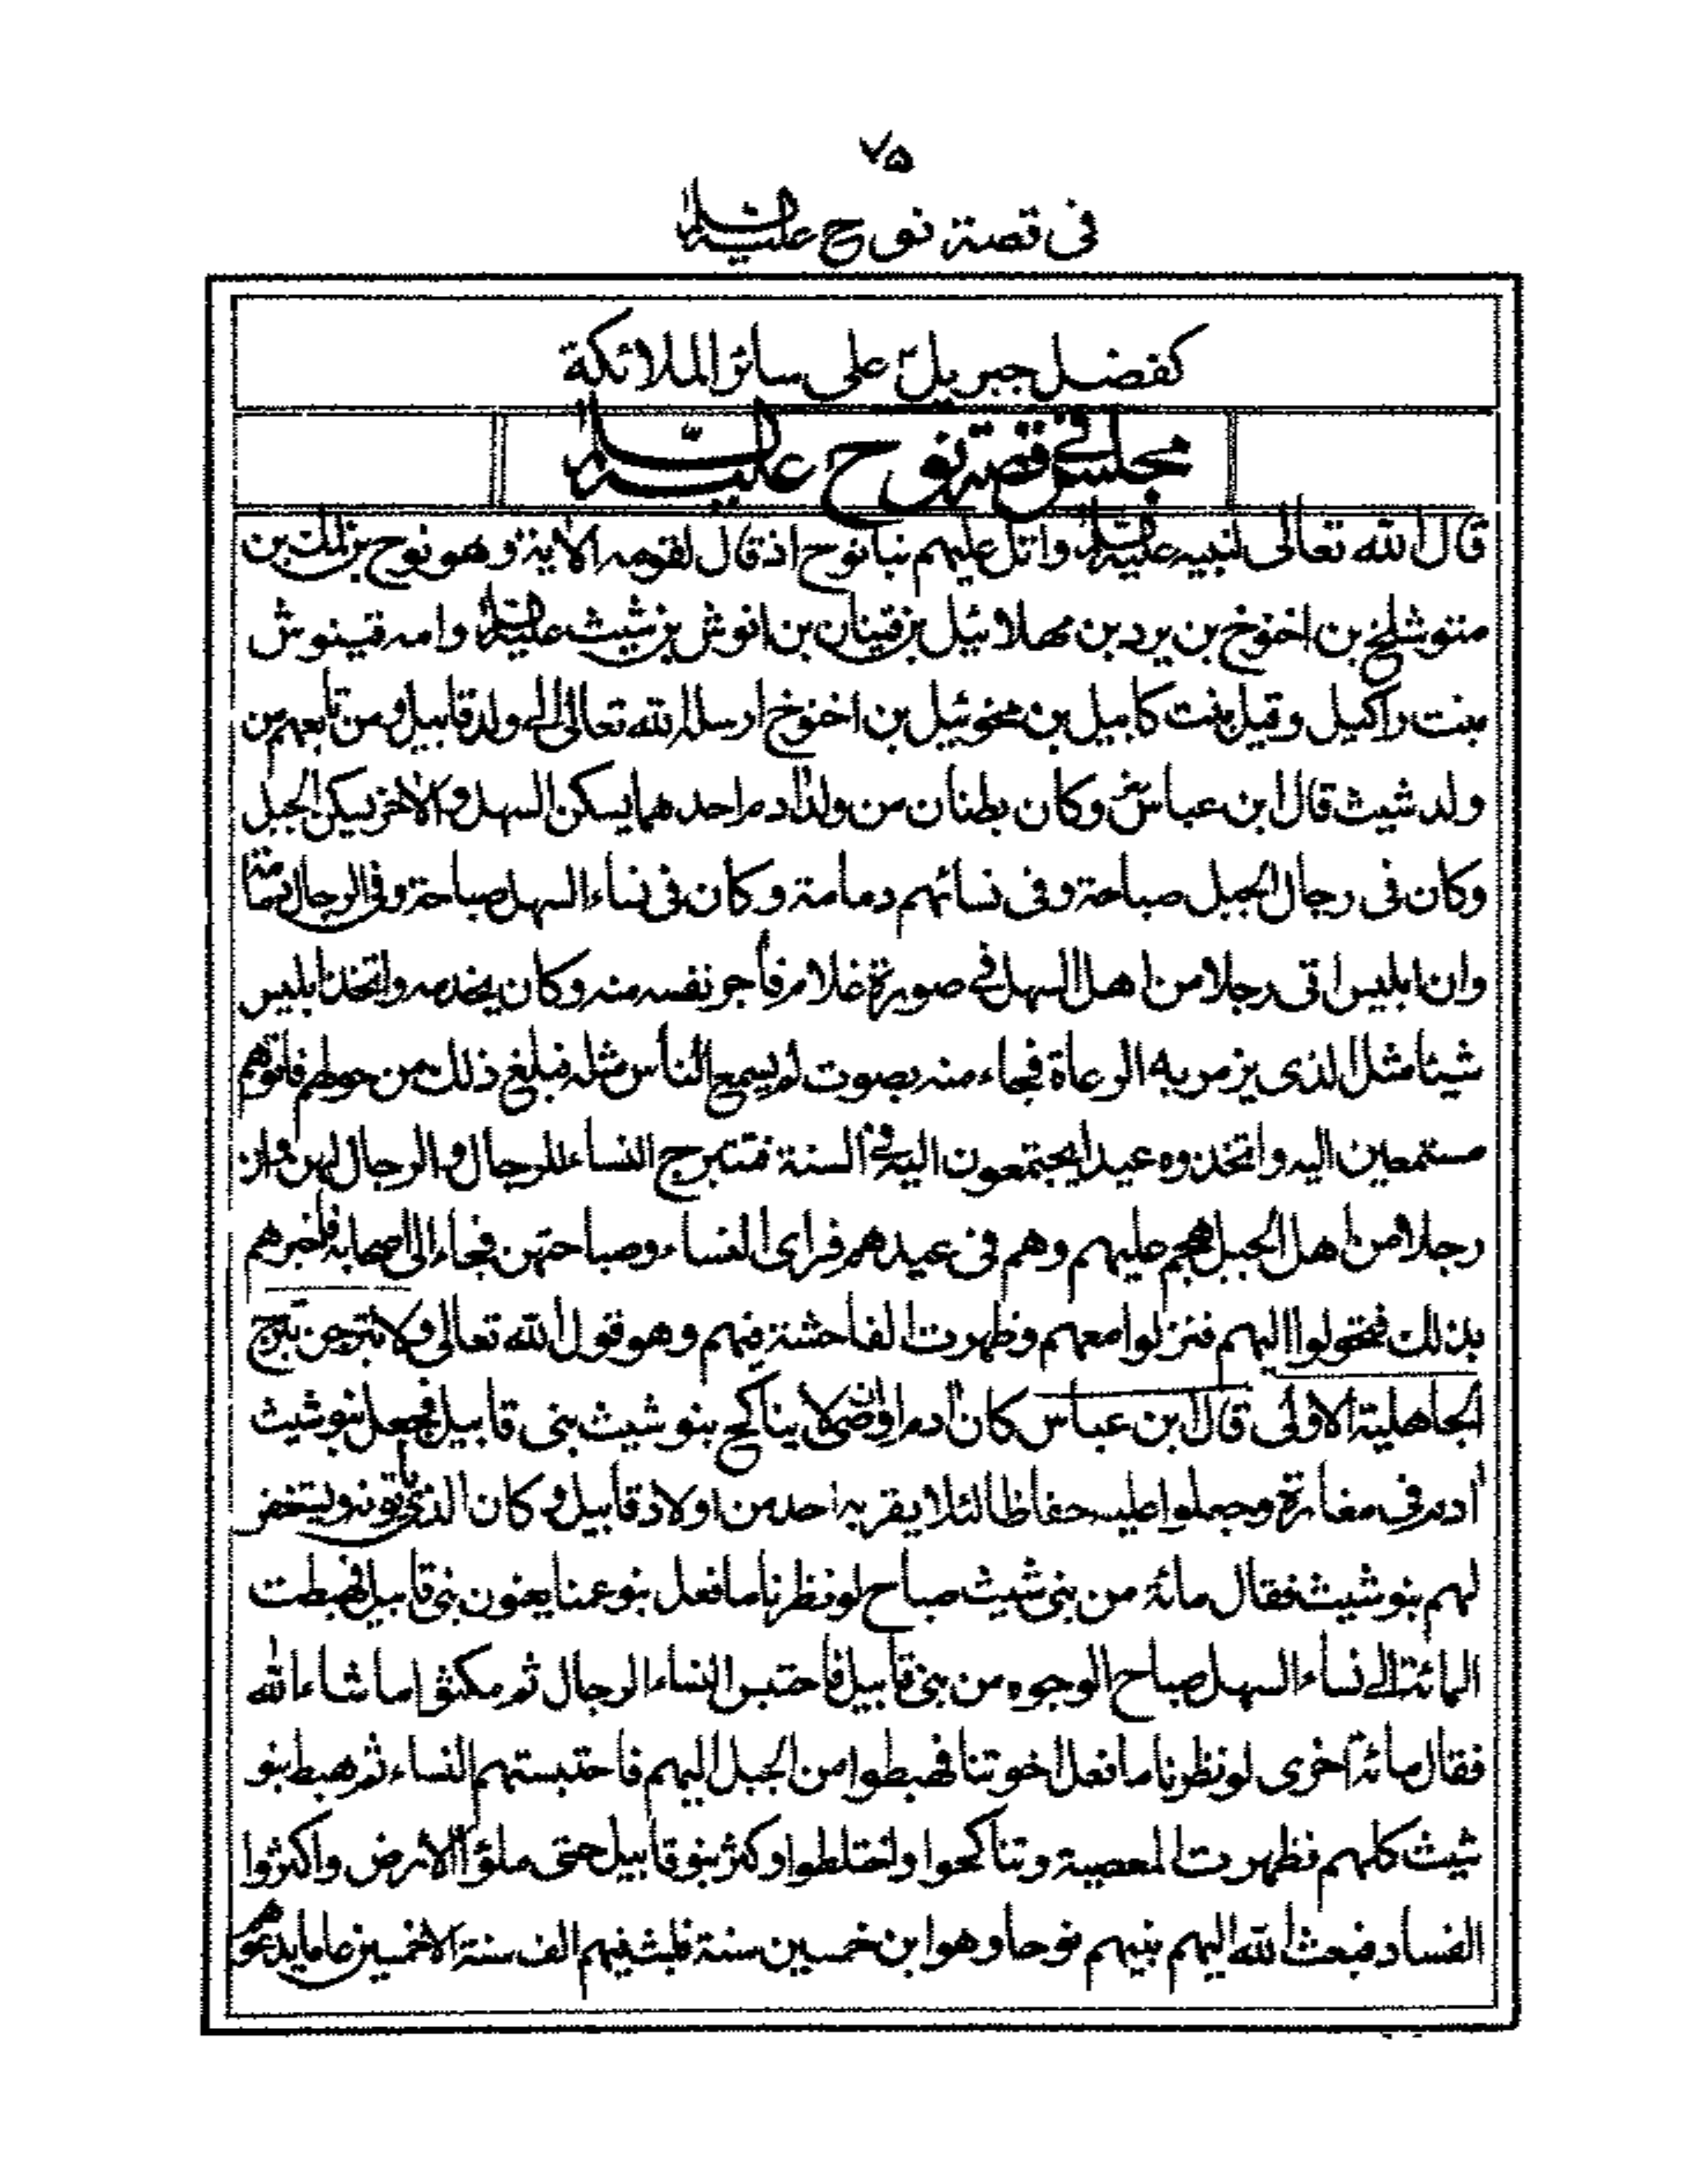 ٧۵
فى قصة نوح عليه السلام
كفضل جبريلؑ على سائر الملائكة
مجلس فى قصة نوح عليه السلام
قال الله تعالى لنبيه عليه السلام واتل عليهم نبأ نوح اذ قال لقومه الاية وهو نوح بن لمك بن
متوشلخ بن اخنوخ بن يرد بن مهلائيل بن قينان بن انوش بن شيث عليه السلام وامه قينوش
بنت راكيل وقيل بنت كابيل بن مخوئيل بن اخنوخ ارسله الله تعالى الى ولد قابيل ومن تابعهم من
ولد شيث قال ابن عباسؓ وكان بطنان من ولد ادم احدهما يسكن السهل والاخر يسكن الجبل
وكان فى رجال الجبل صباحة وفى نسائهم دمامة وكان فى نساء السهل صباحة وفى الرجال دمامة
وان ابليس اتى رجلا من اهل السهل فى صورة غلام فأجر نفسه منه وكان يخدمه واتخذ ابليس
شيئا مثل الذى يزمر به الرعاة فجاء منه بصوت لم يسمع الناس مثله فبلغ ذلك من حولهم فاتوهم
مستمعين اليه واتخذوه عيدا يجتمعون اليه فى السنة فتتبرج النساء للرجال والرجال لهن وان
رجلا من اهل الجبل هجم عليهم وهم فى عيدهم فراى النساء وصباحتهن فجاء الى اصحابه فاخبرهم
بذلك فتحولوا اليهم فنزلوا معهم وظهرت الفاحشة فيهم وهو قول الله تعالى ولا تبرجن تبرج
الجاهلية الاولى قال ابن عباس كان ادم اوصى ان لا يناكح بنو شيث بنى قابيل فجعل بنو شيث
ادم فى مغارة وجعلوا عليه حفاظا لئلا يقربه احد من اولاد قابيل وكان الذى يأتونه ويستغفر
لهم بنو شيث فقال مائة من بنى شيث صباح لو نظرنا ما فعل بنو عمنا يعنون بنى قابيل فهبطت
المائة الى نساء السهل صباح الوجوه من بنى قابيل فاحتبس النساء الرجال ثم مكثوا ما شاء الله
فقال مائة اخرى لو نظرنا ما فعل اخوتنا فهبطوا من الجبل اليهم فاحتبستهم النساء ثم هبط بنو
شيث كلهم فظهرت المعصية وتناكحوا واختلطوا وكثر بنو قابيل حتى ملؤا الارض واكثروا
الفساد فبعث الله اليهم نبيهم نوحا وهو ابن خمسين سنة فلبث فيهم الف سنة الا خمسين عاما يدعوهم